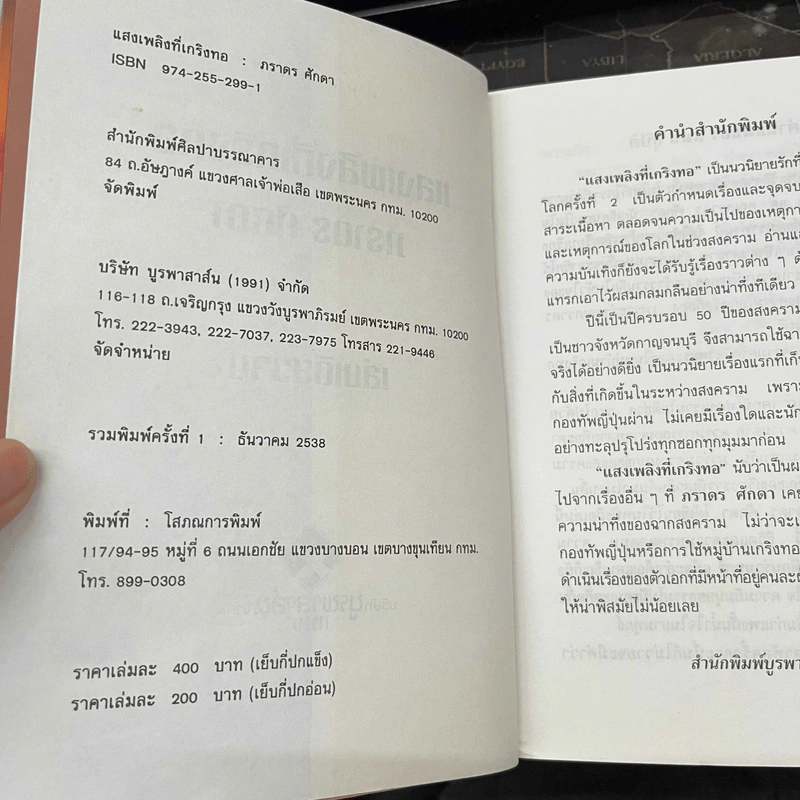 แสงเพลิงที่เกริงทอ : ภราดร ศักดา
ISBN 974-255-299-1
สำนักพิมพ์ศิลปาบรรณาคาร
84 ถ.อัษฎางค์ แขวงศาลเจ้าพ่อเสือ เขตพระนคร กทม. 10200
จัดพิมพ์
บริษัท บูรพาสาส์น (1991) จำกัด
116-118 ถ.เจริญกรุง แขวงวังบูรพาภิรมย์ เขตพระนคร กทม. 10200
โทร. 222-3943, 222-7037, 223-7975 โทรสาร 221-9446
จัดจำหน่าย
รวมพิมพ์ครั้งที่ 1 : ธันวาคม 2538
พิมพ์ที่ : โสภณการพิมพ์
117/94-95 หมู่ที่ 6 ถนนเอกชัย แขวงบางบอน เขตบางขุนเทียน กทม.
โทร. 899-0308
ราคาเล่มละ 400 บาท (เย็บกี่ปกแข็ง)
ราคาเล่มละ 200 บาท (เย็บกี่ปกอ่อน)
คำนำสำนักพิมพ์
"แสงเพลิงที่เกริงทอ" เป็นนวนิยายรักที่
โลกครั้งที่ 2 เป็นตัวกำหนดเรื่องและจุดจบ
สาระเนื้อหา ตลอดจนความเป็นไปของเหตุกา
และเหตุการณ์ของโลกในช่วงสงคราม อ่านแล
ความบันเทิงก็ยังจะได้รับรู้เรื่องราวต่าง ๆ ด้
แทรกเอาไว้ผสมกลมกลืนอย่างน่าทึ่งทีเดียว
ปีนี้เป็นปีครบรอบ 50 ปีของสงคราม
เป็นชาวจังหวัดกาญจนบุรี จึงสามารถใช้ฉา
จริงได้อย่างดียิ่ง เป็นนวนิยายเรื่องแรกที่เก็
กับสิ่งที่เกิดขึ้นในระหว่างสงคราม เพรา
กองทัพญี่ปุ่นผ่าน ไม่เคยมีเรื่องใดและนัก
อย่างทะลุปรุโปร่งทุกซอกทุกมุมมาก่อน
"แสงเพลิงที่เกริงทอ" นับว่าเป็นผ
ไปจากเรื่องอื่น ๆ ที่ ภราดร ศักดา เคย
ความน่าทึ่งของฉากสงคราม ไม่ว่าจะเ
กองทัพญี่ปุ่นหรือการใช้หมู่บ้านเกริงทอ
ดำเนินเรื่องของตัวเอกที่มีหน้าที่อยู่คนละ
ให้น่าพิสมัยไม่น้อยเลย
สำนักพิมพ์บูรพา
ALGERIA
LIBYA
EGYPT